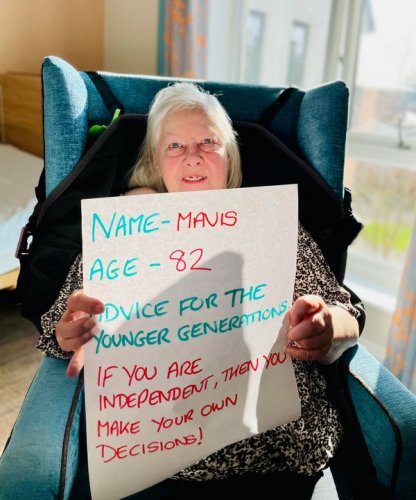 NAME - MAVIS
AGE - 82
ADVICE FOR THE
YOUNGER GENERATIONS
IF YOU ARE
INDEPENDENT, THEN YOU
MAKE YOUR OWN
DECISIONS!